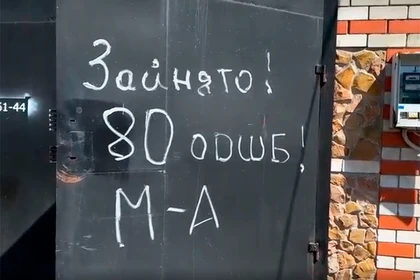 Зайнято!
80 ОДШБ!
М-А
51-44